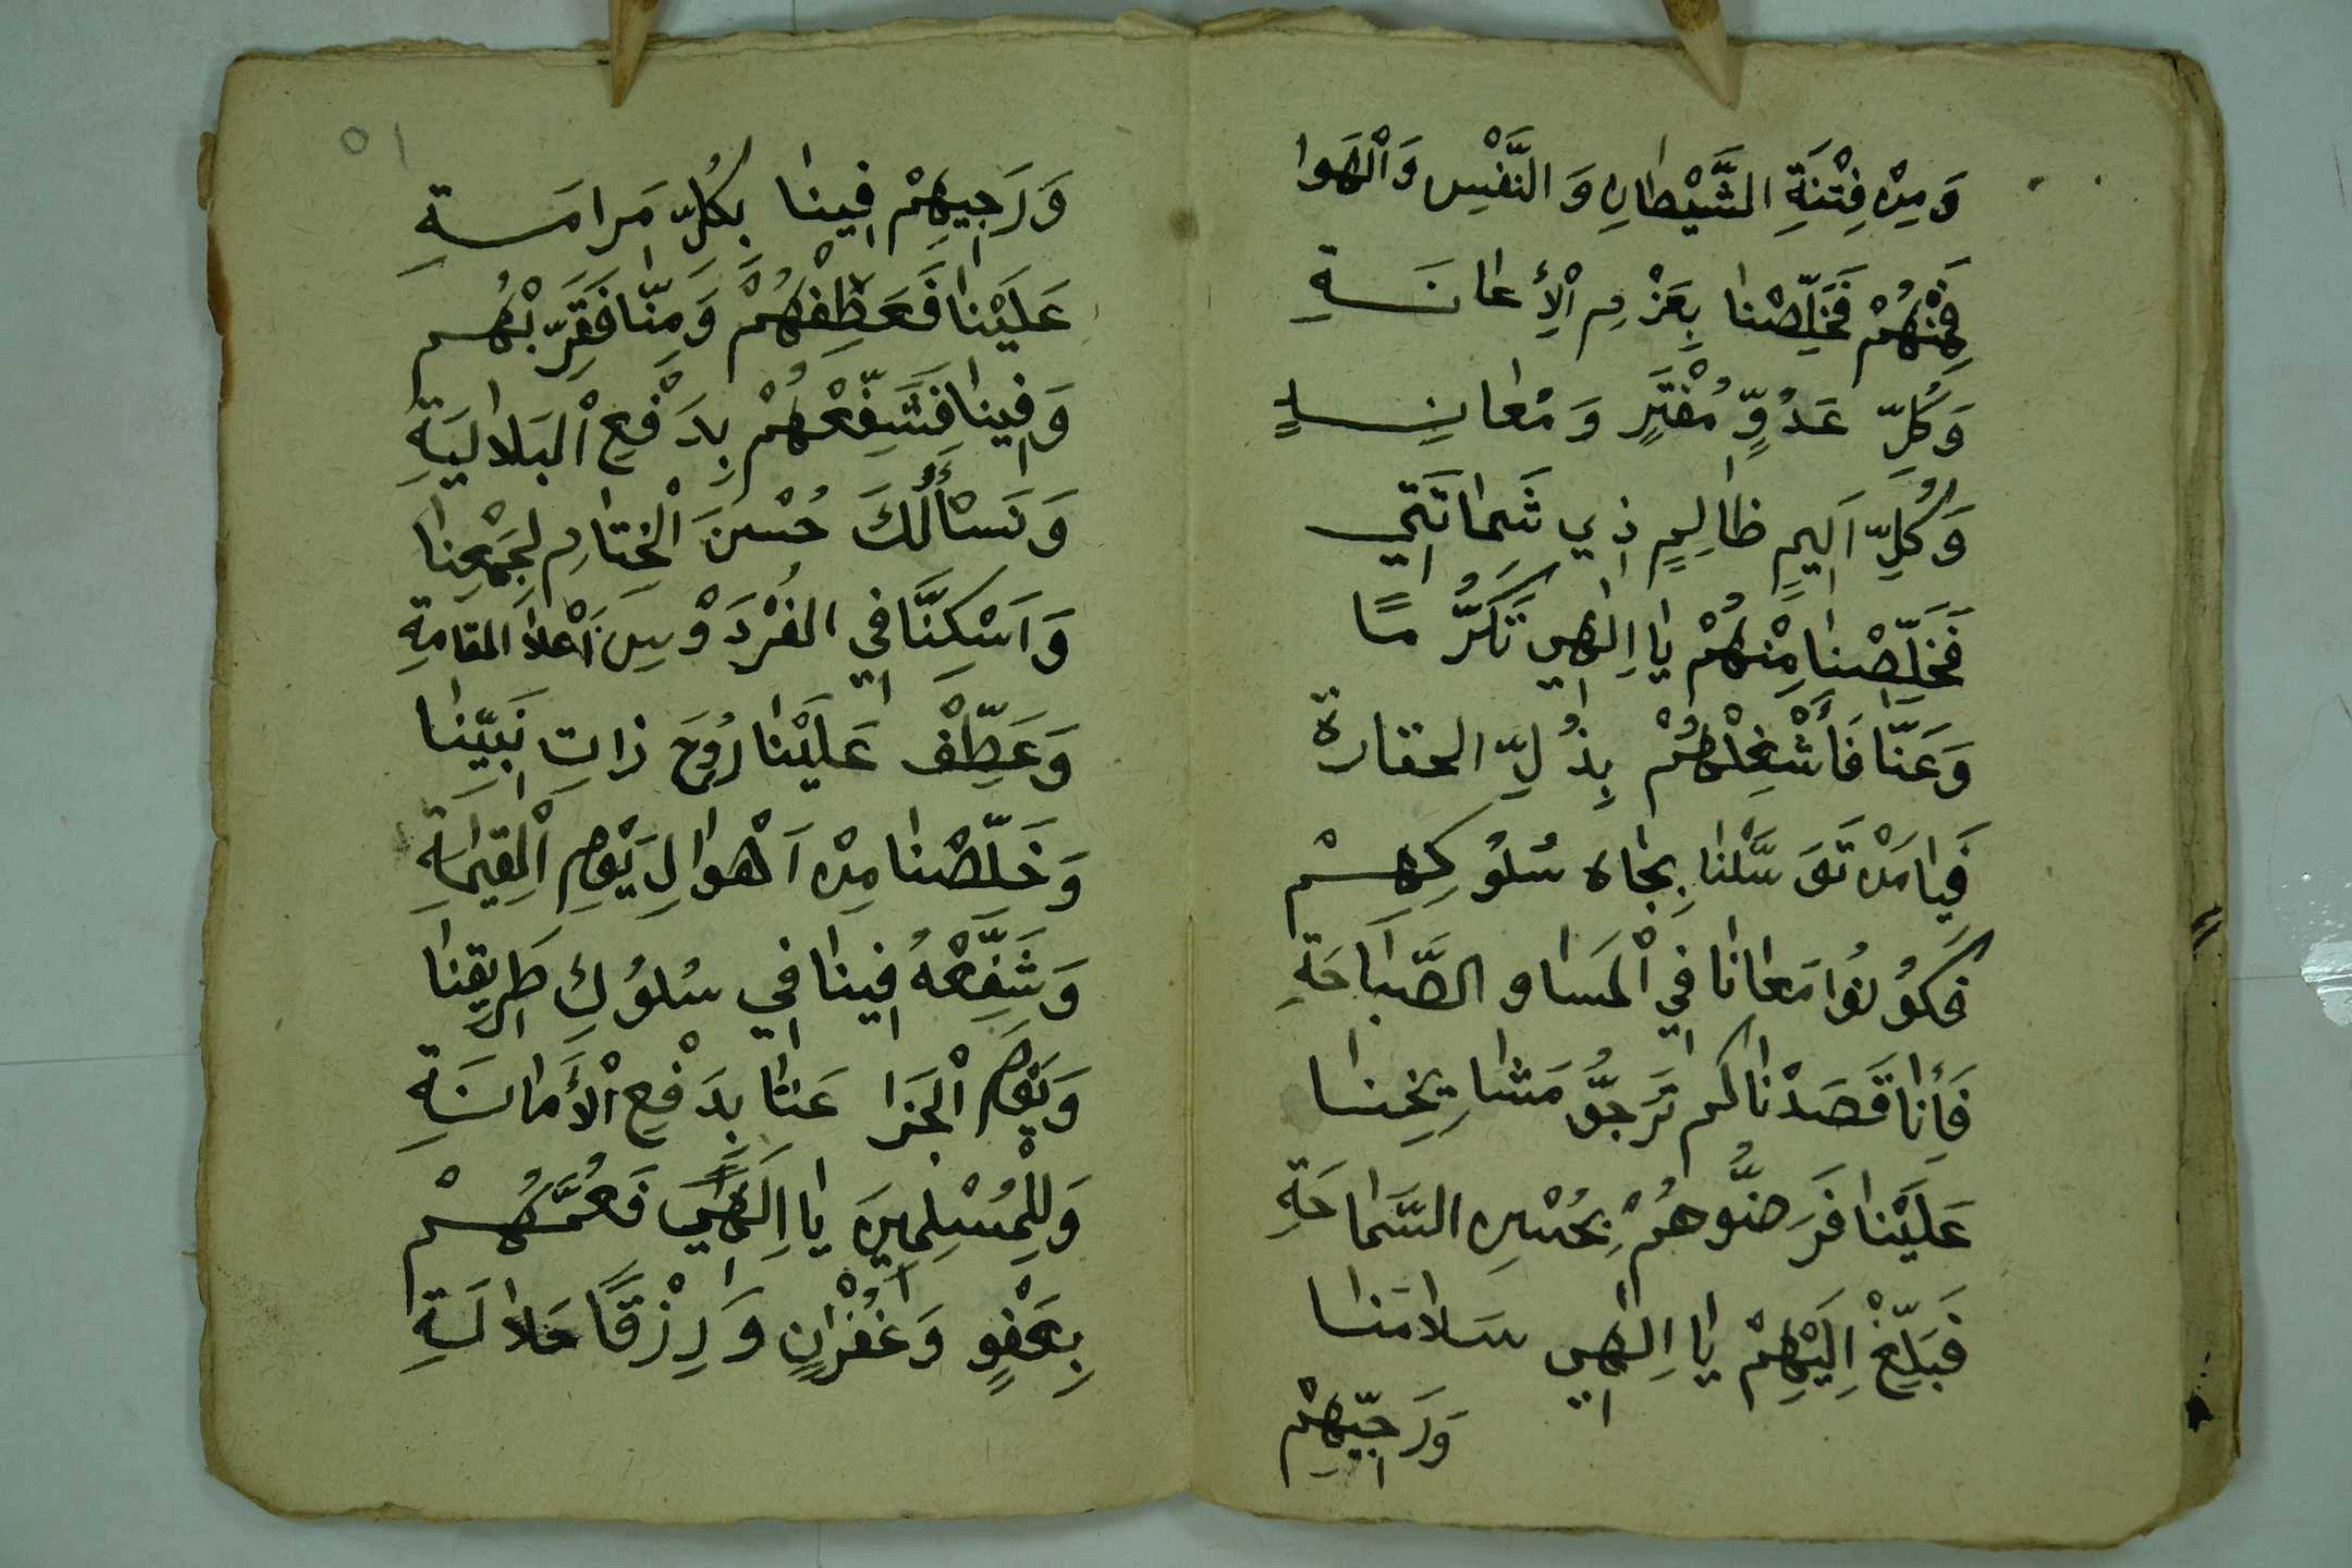 وَمِنْ فِتْنَةِ الشَّيْطَانِ وَالنَّفْسِ وَالْهَوَا
فَمِنْهُمْ فَخَلِّصْنَا بِعَزْمِ الْأِعَانَةِ
وَكُلِّ عَدُوٍّ مُفْتَرٍ وَمُعَانِدٍ
وَكُلِّ اَلِيمٍ ظَالِمٍ ذِي شَمَاتَتِي
فَخَلِّصْنَا مِنْهُمْ يَا اِلٰهِي تَكَرُّمًا
وَعَنَّا فَأَشْغِلْهُمْ بِذُلِّ الحقارة
فَيَا مَنْ تَوَسَّلْنَا بِجَاهِ سُلُوكِهِمْ
فَكُونُوا مَعَانَا فِي الْمَسَا وَالصَّبَاحَةِ
فَأِنَّا قَصَدْنَاكُم نَرَجُّو مَشَايِخِنَا
عَلَيْنَا فَرَضُّوهُمْ بِحُسْنِ السَّمَاحَةِ
فَبَلِّغْ اِلَيْهِمْ يَا اِلٰهِي سَلَامَنَا
وَرَجِّيهِمْ
٥١
وَرَجِيهِمْ فِينَا بِكُلِّ مَرَامَةِ
عَلَيْنَا فَعَطِّفْهُمْ وَمِنَّا فَقَرِّبْهُم
وَفِينَا فَشَفِّعْهُمْ بِدَفْعِ الْبَلَالِيَةِ
وَنَسْأَلُكَ حُسْنَ الْخِتَامِ لِجَمْعِنَا
وَاَسْكِنَّا فِي الفُرْدَوْسِ أَعْلَا المقامةِ
وَعَطِّفْ عَلَيْنَا رُوحَ ذَاتِ نَبِيِّنَا
وَخَلِّصْنَا مِنْ اَهْوَالِ يَوْمِ الْقِيَامَةِ
وَشَفِّعْهُ فِينَا فِي سُلُوكِ طَرِيقِنَا
وَيَوْمَ الْجَزَا عَنَّا بِدَفْعِ الْأَمَانَةِ
وَلِلْمُسْلِمِينَ يَا اِلٰهِي فَعُمَّهُمْ
بِعَفْوٍ وَغُفْرَانٍ وَرِزْقًا حَلَالَةِ